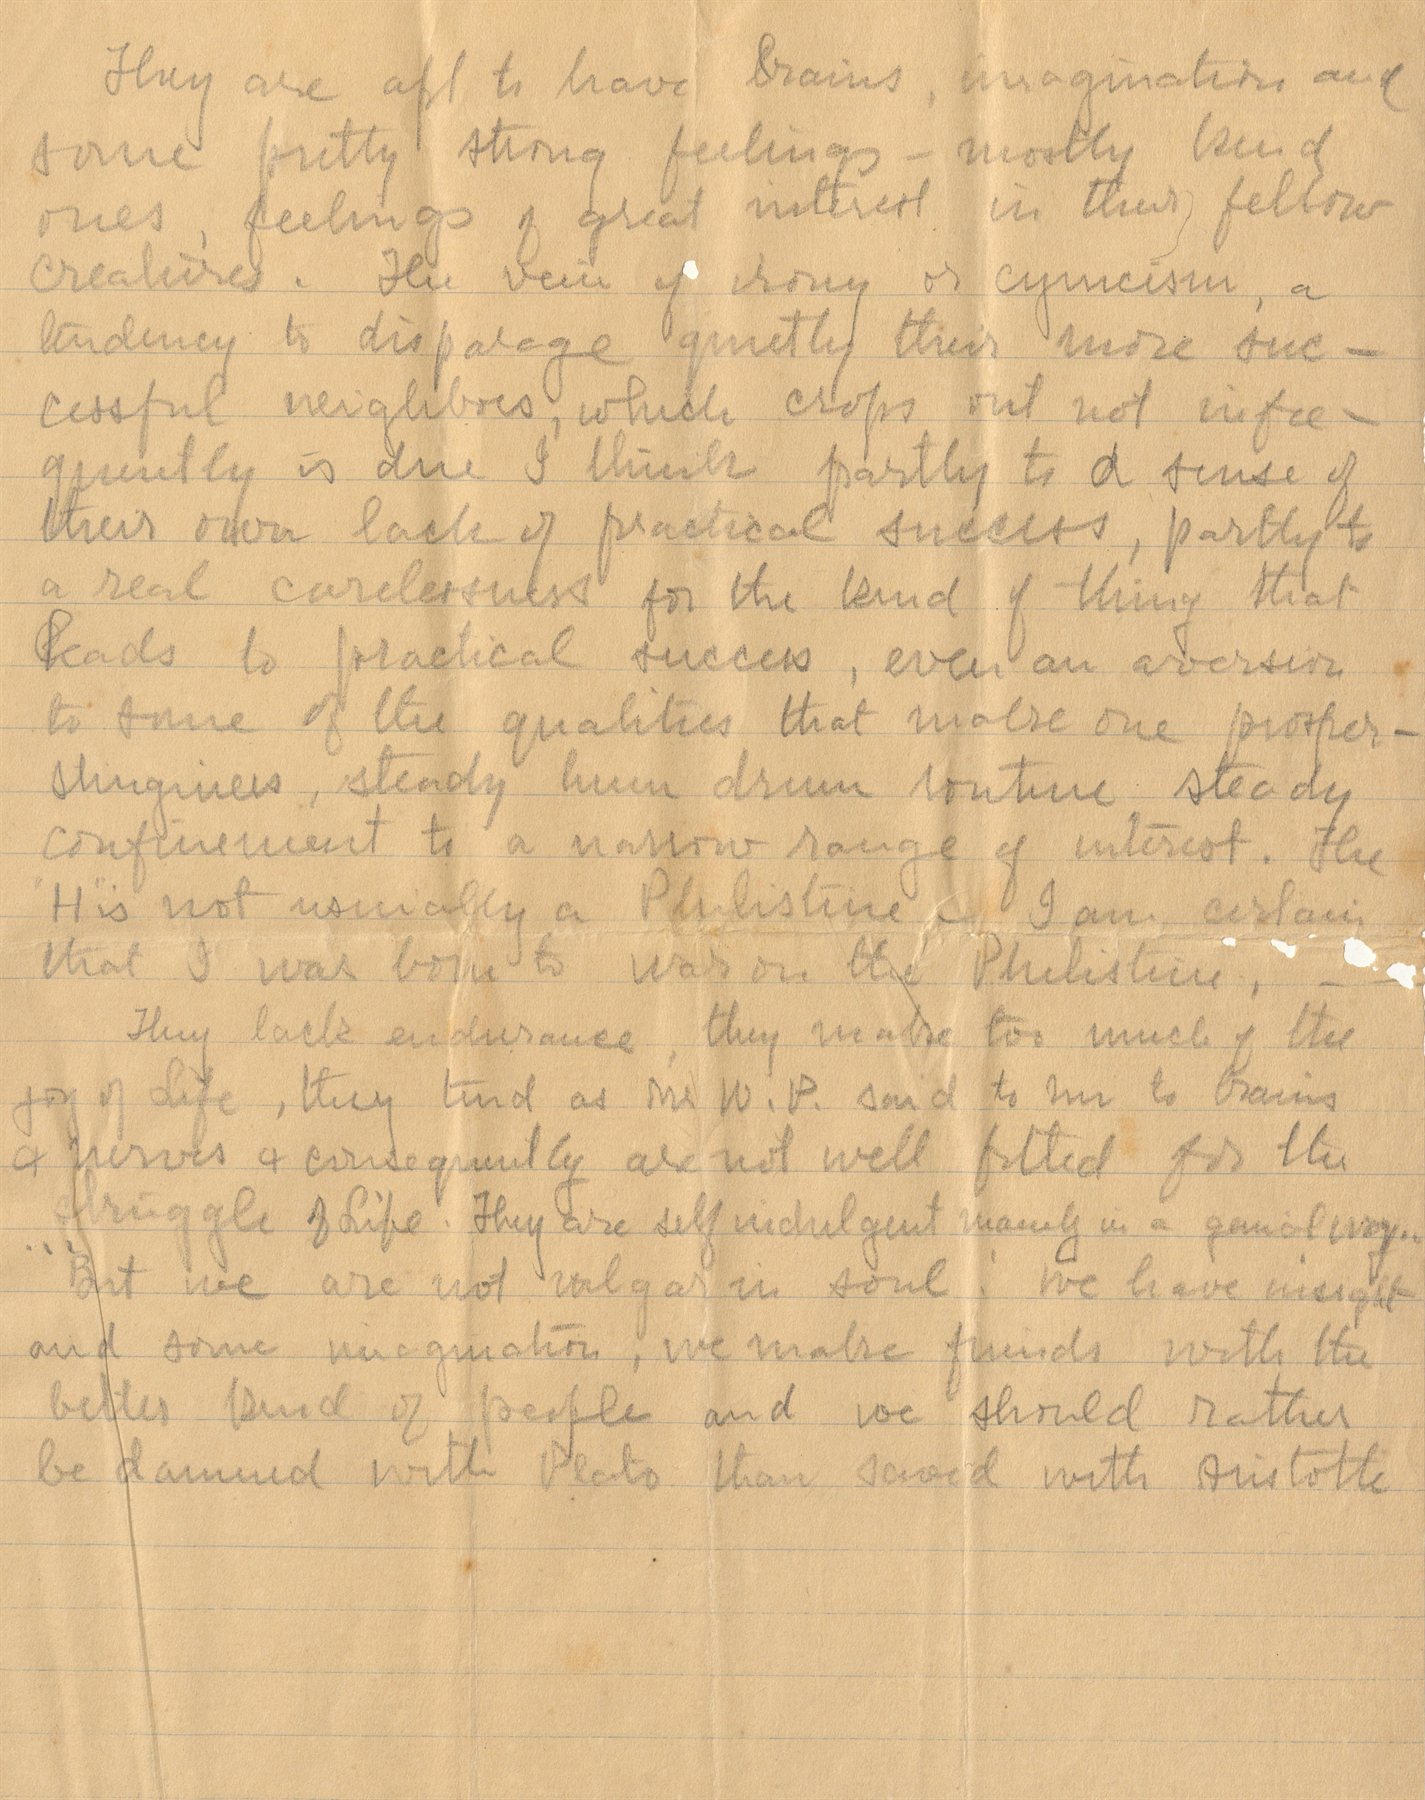 They are apt to have brains, imagination and
some pretty strong feelings – mostly kind
ones, feelings of great interest in their fellow
creatures. The vein of irony or cynicism, a
tendency to disparage quietly their more suc–
cessful neighbors, which crops out not infre–
quently is due I think partly to a sense of
their own lack of practical success, partly to
a real carelessness for the kind of thing that
leads to practical success, even an aversion
to some of the qualities that make one prosper –
stinginess, steady hum drum routine, steady
confinement to a narrow range of interest. The
"H" is not usually a Philistine & I am certain
that I was born to war on the Philistine, –
They lack endurance, they make too much of the
joy of Life, they tend as Mr W. P. said to me to brains
& nerves & consequently are not well fitted for the
struggle of Life. They are self indulgent mainly in a genial way..
... But we are not vulgar in soul; we have insight
and some imagination, we make friends with the
better kind of people and we should rather
be damned with Plato than saved with Aristotle